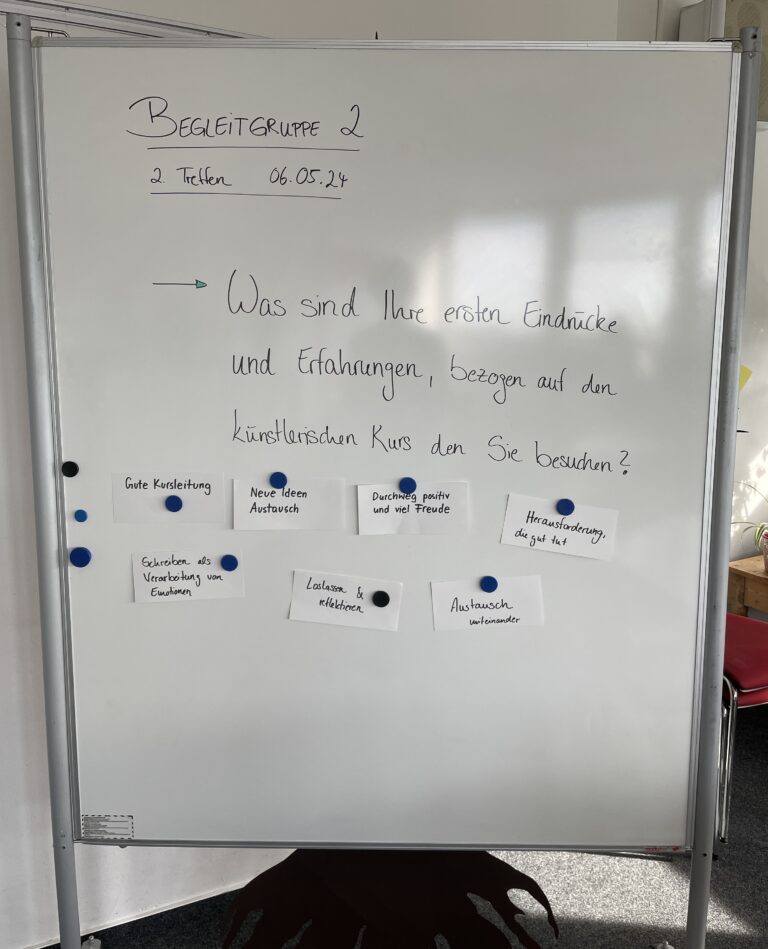 BEGLEITGRUPPE 2
2. Treffen 06.05.24
→ Was sind Ihre ersten Eindrücke
und Erfahrungen, bezogen auf den
künstlerischen Kurs den Sie besuchen?
Gute Kursleitung
Neue Ideen
Austausch
Durchweg positiv
und viel Freude
Herausforderung,
die gut tut
Schreiben als
Verarbeitung von
Emotionen
Loslassen &
reflektieren
Austausch
miteinander